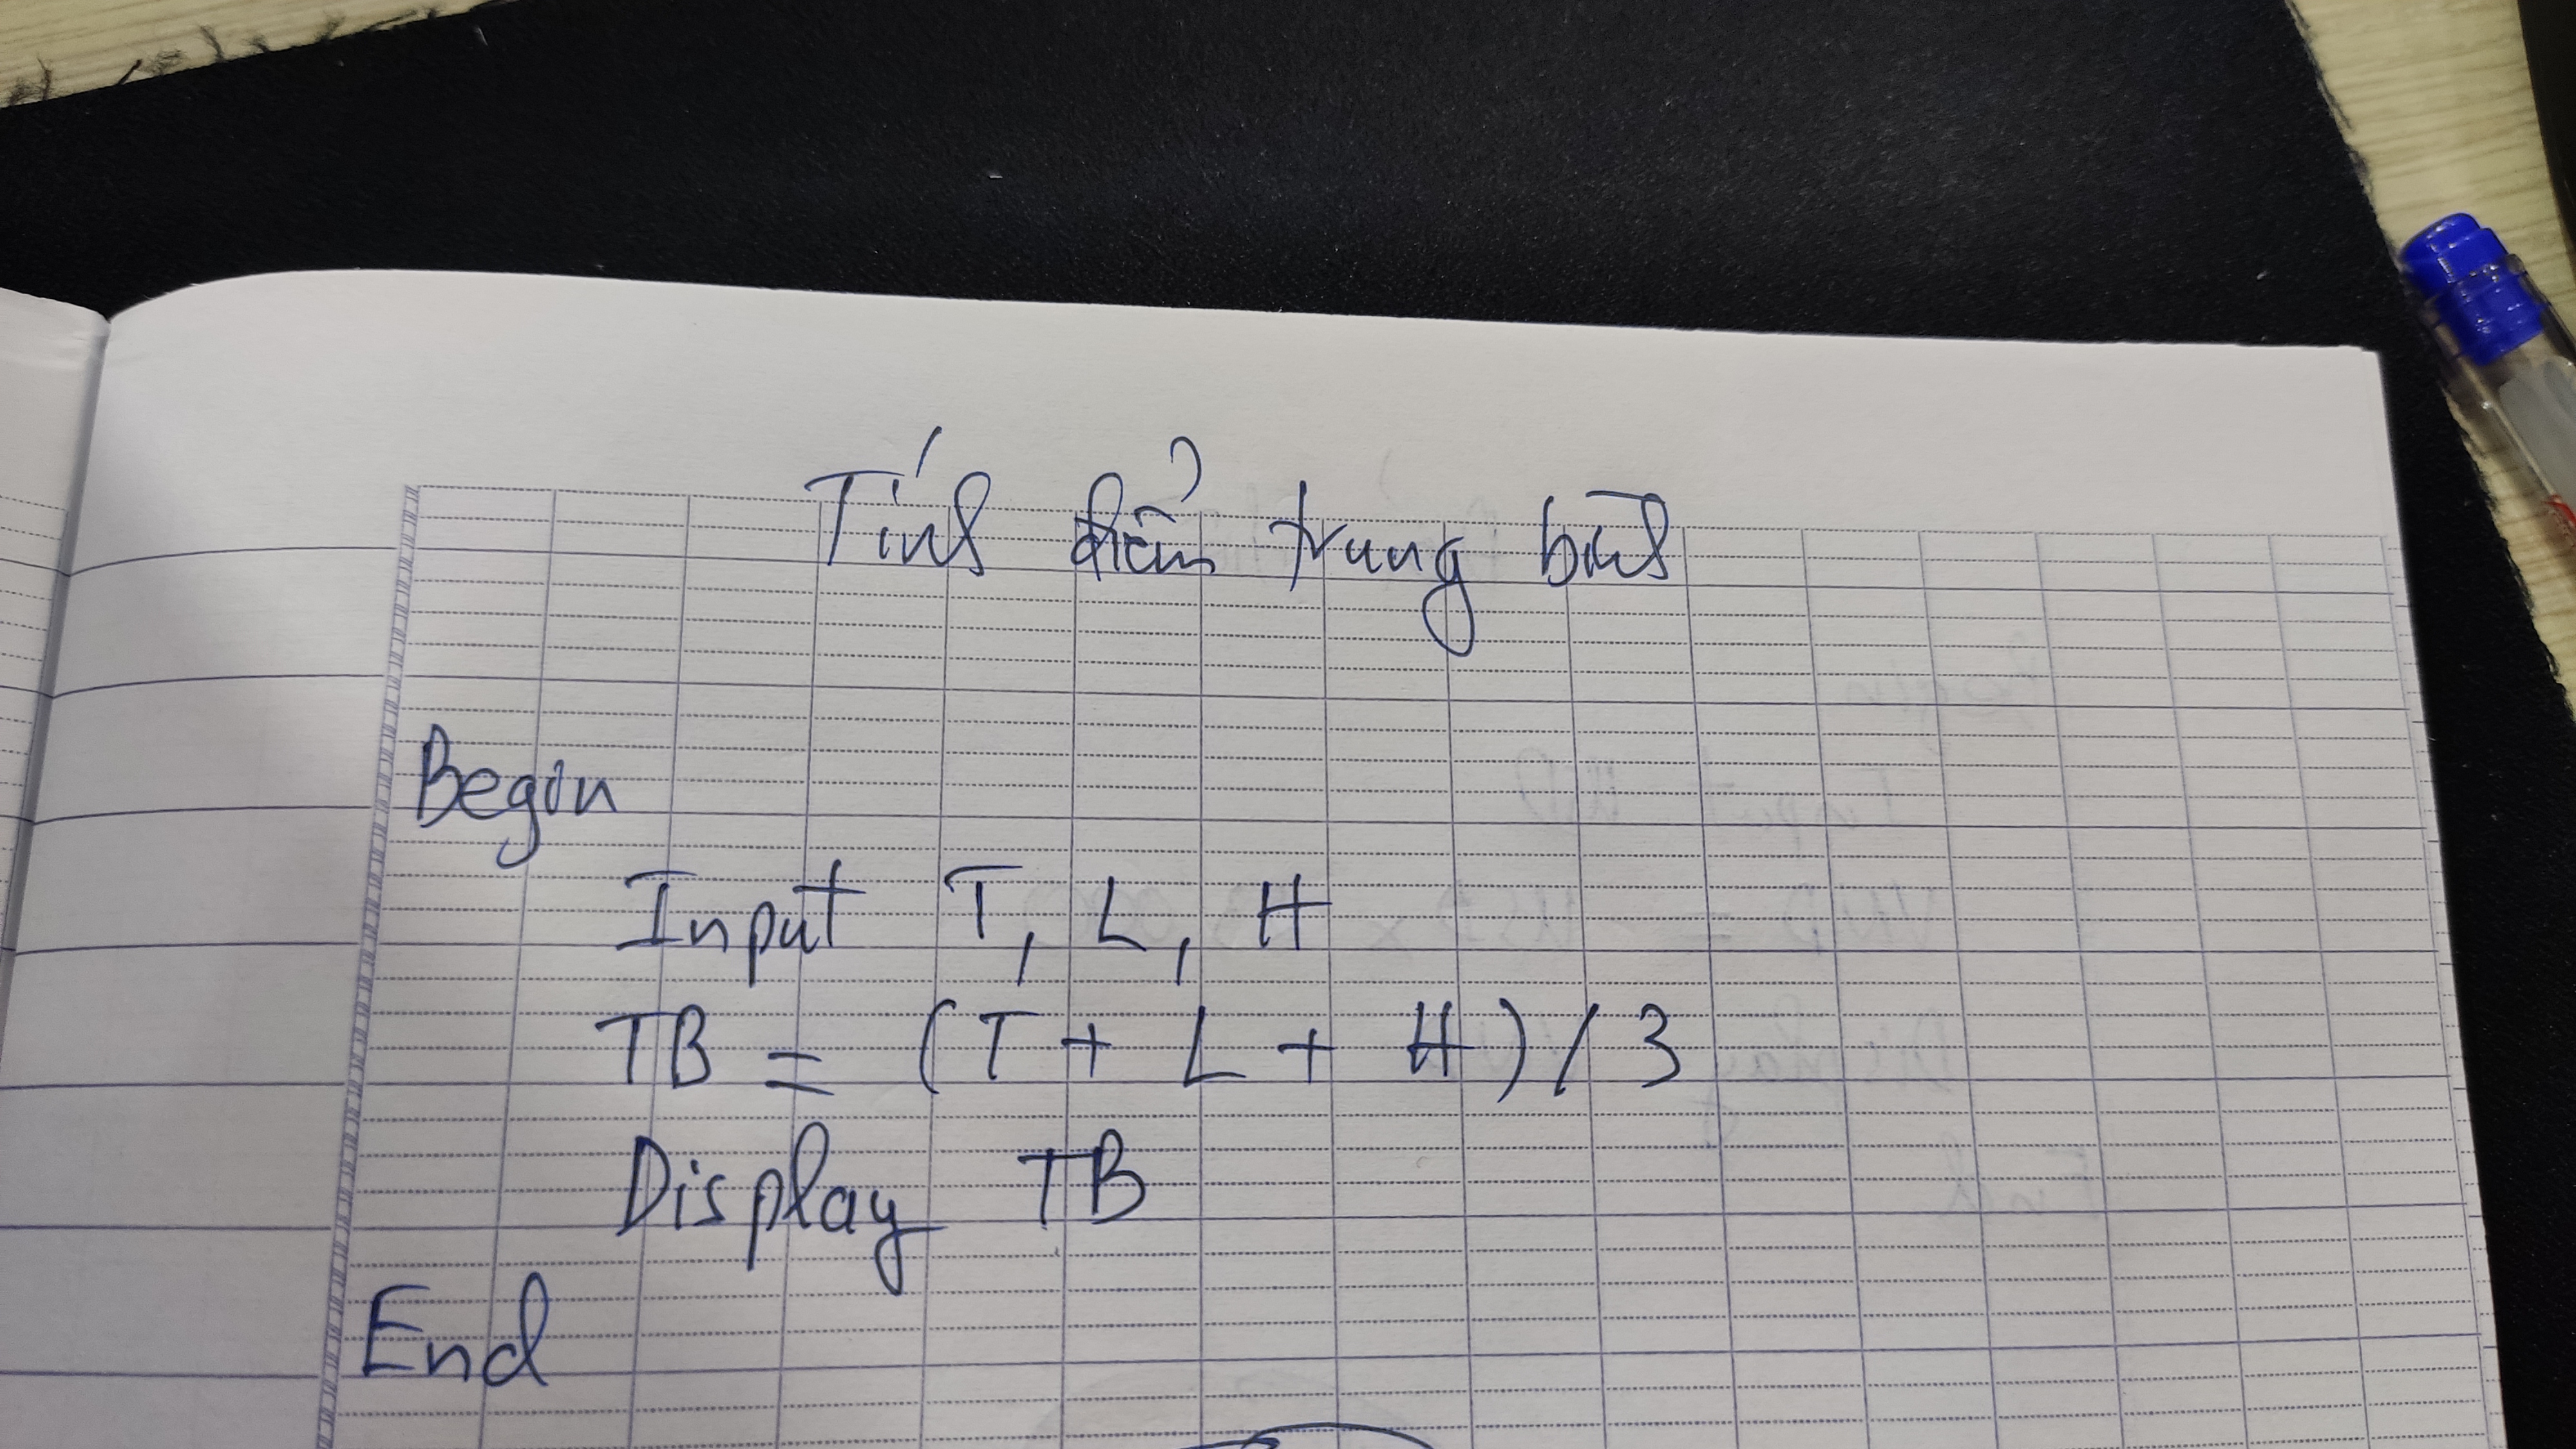 Tính điểm trung bình
Begin
Input T, L, H
TB = (T + L + H) / 3
Display TB
End